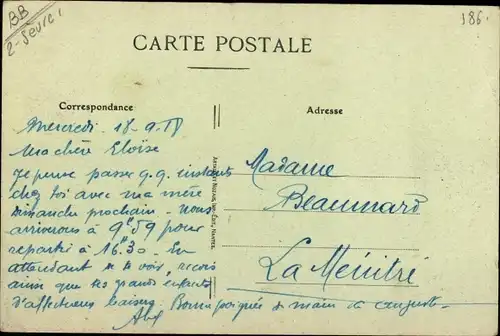 BB
2-Sèvres
186
CARTE POSTALE
Correspondance
Adresse
Mercredi 18-9-18
Ma chère Eloïse
Je pense passer q.q. instants
chez toi avec ma mère
Dimanche prochain. Nous
arriverons à 9h59 pour
repartir à 16h30. En
attendant de te voir, reçois
ainsi que tes grands enfants
d'affectueux baisers. Bonne poignée de main à Auguste
Abel
Madame
Beaumard
La Ménitré